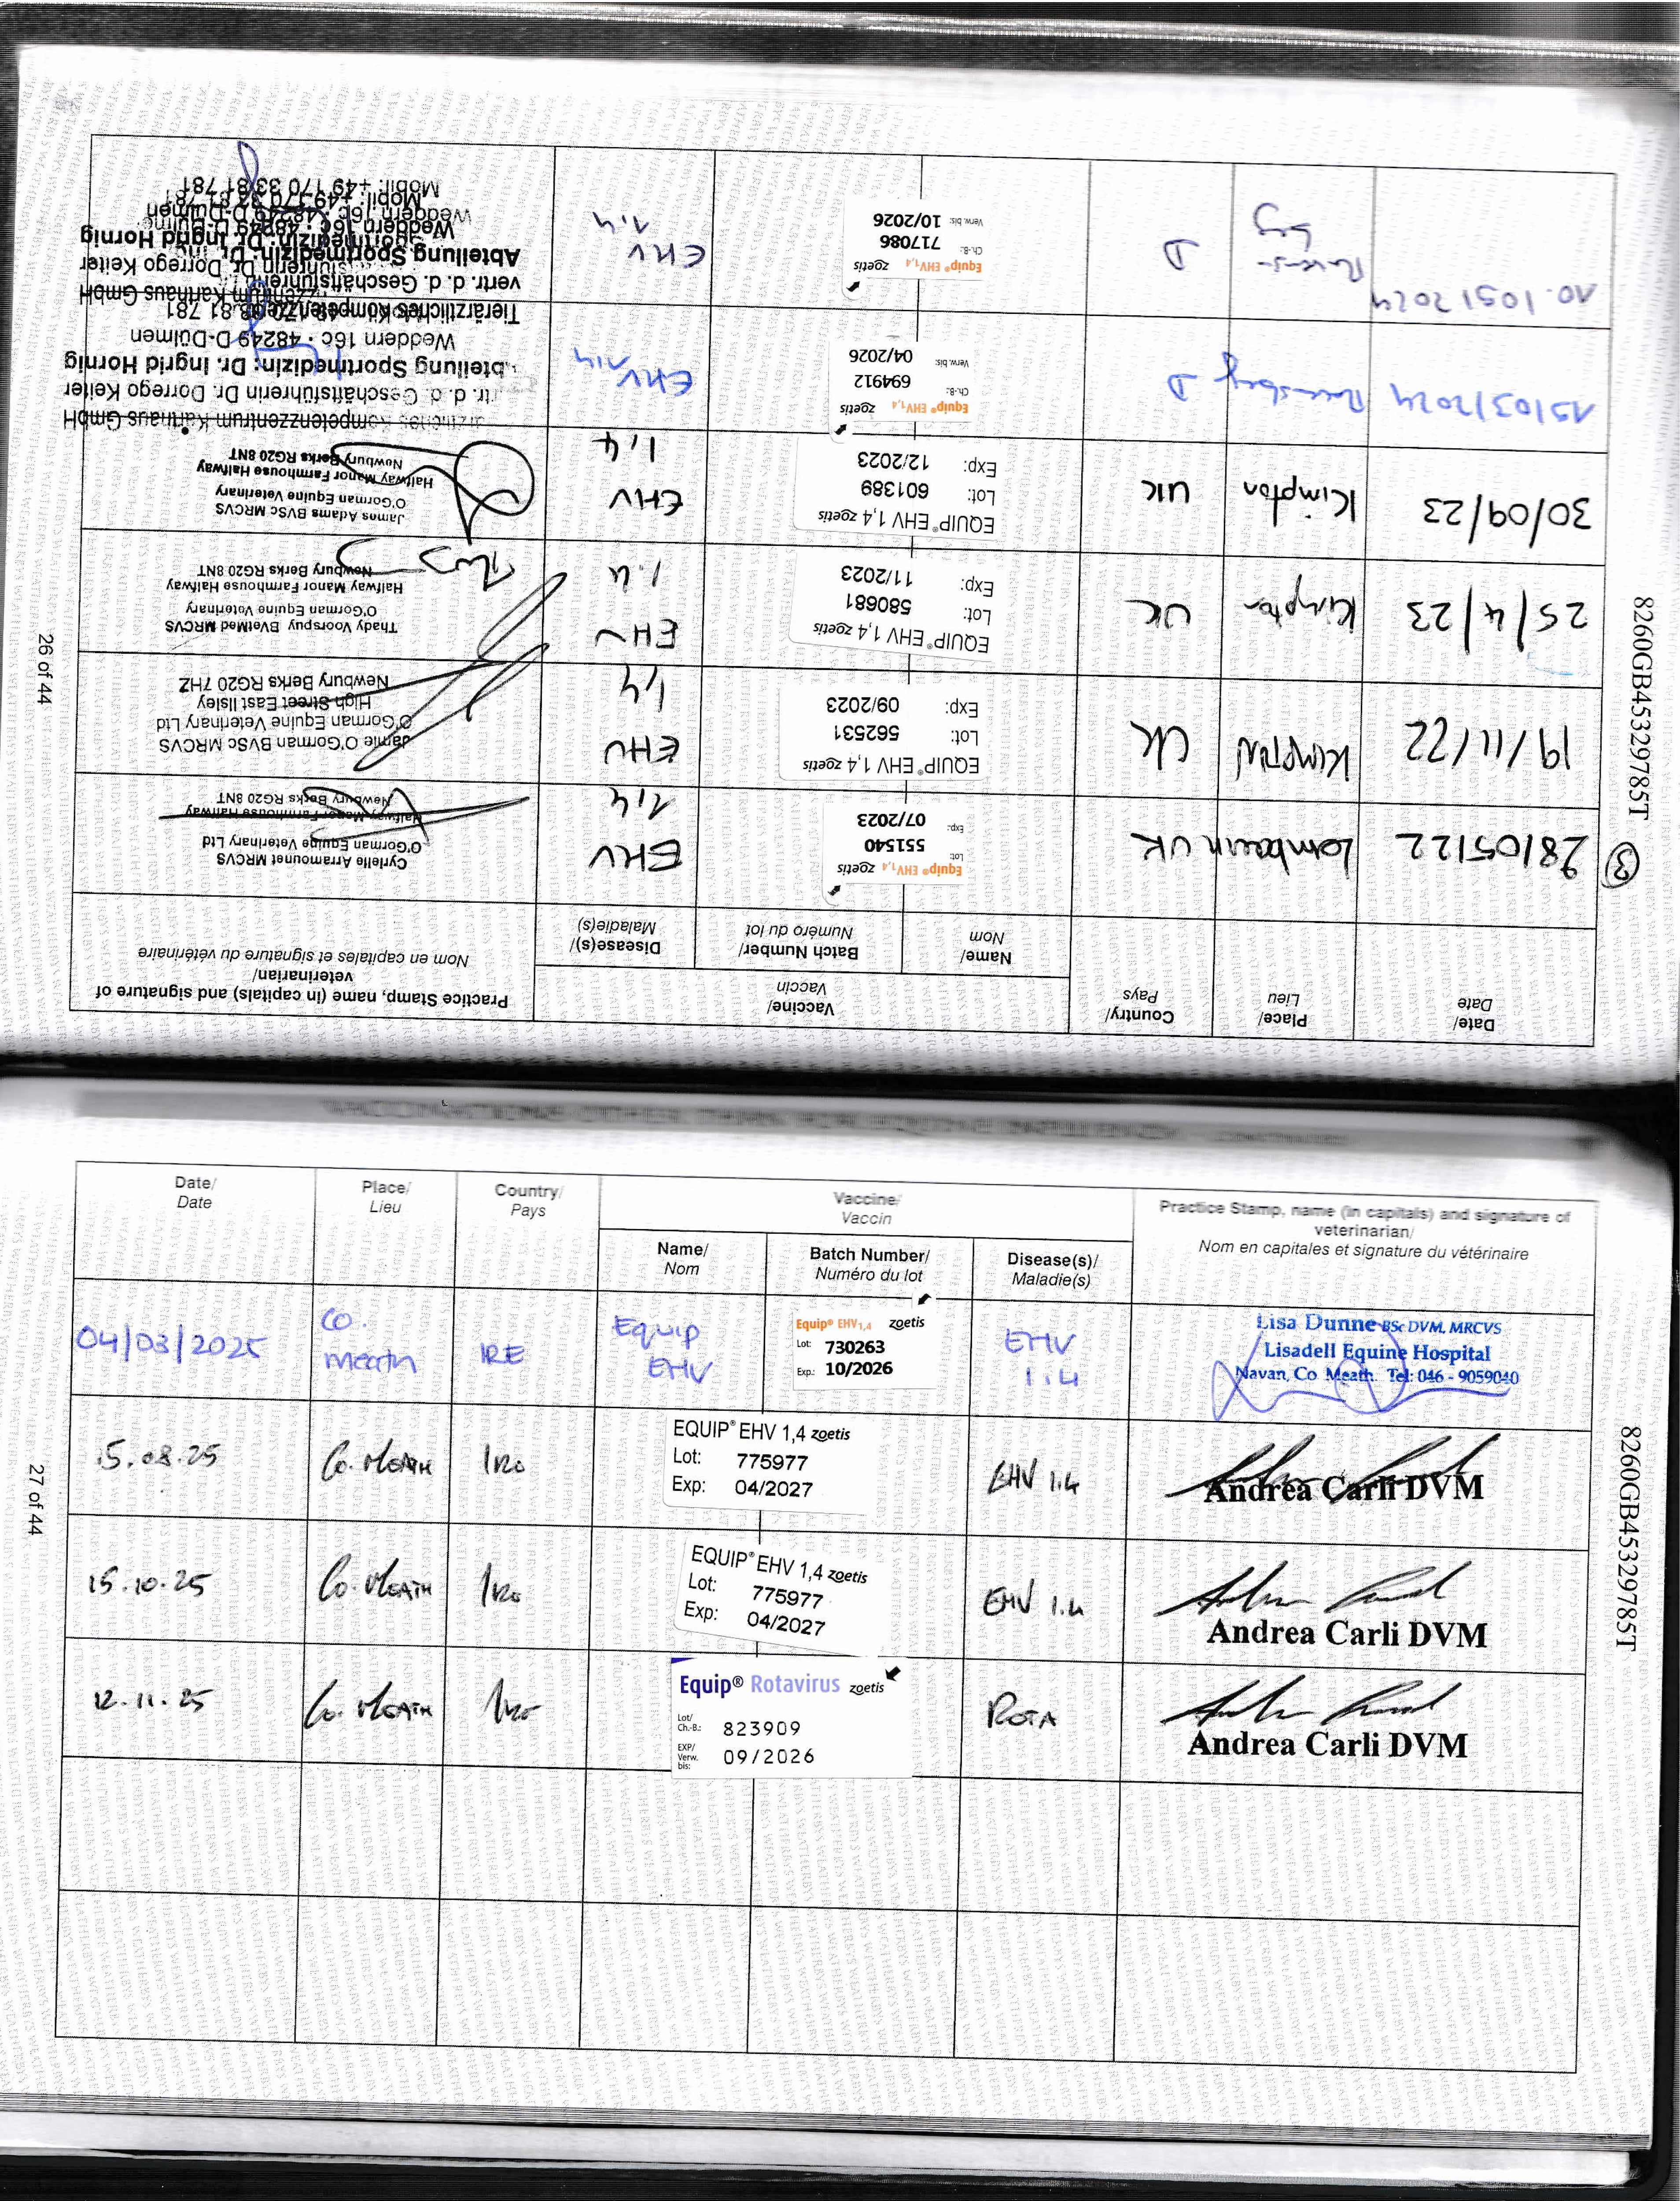 8260GB45329785T
26 of 44
Date/
Date
Place/
Lieu
Country/
Pays
Vaccine/
Vaccin
Name/
Nom
Batch Number/
Numéro du lot
Disease(s)/
Maladie(s)
Practice Stamp, name (in capitals) and signature of
veterinarian/
Nom en capitales et signature du vétérinaire
3
28/05/22
Lambourn UK
Equip® EHV1,4 zoetis
Lot: 551540
Exp.: 07/2023
EHV
1,4
Cyrielle Arramounet MRCVS
O'Gorman Equine Veterinary Ltd
Halfway Manor Farmhouse Halfway
Newbury Berks RG20 8NT
19/11/22
KIMPTON
UK
EQUIP® EHV 1,4 zoetis
Lot: 562531
Exp: 09/2023
EHV
1,4
Jamie O'Gorman BVSc MRCVS
O'Gorman Equine Veterinary Ltd
High Street East Ilsley
Newbury Berks RG20 7HZ
25/4/23
Kimpton
UK
EQUIP® EHV 1,4 zoetis
Lot: 580681
Exp: 11/2023
EHV
1.4
Thady Voorspuy BVetMed MRCVS
O'Gorman Equine Veterinary
Halfway Manor Farmhouse Halfway
Newbury Berks RG20 8NT
30/09/23
Kimpton
UK
EQUIP® EHV 1,4 zoetis
Lot: 601389
Exp: 12/2023
EHV
1,4
James Adams BVSc MRCVS
O'Gorman Equine Veterinary
Halfway Manor Farmhouse Halfway
Newbury Berks RG20 8NT
15/03/2024
Ravensberg
D
Equip® EHV1,4 zoetis
Ch.-B.: 694912
Verw. bis: 04/2026
EHV
1,4
Kompetenzzentrum Karthaus GmbH
d. d. Geschäftsführerin Dr. Dorrego Keiter
Sportmedizin: Dr. Ingrid Hornig
Weddern 16c · 48249 D-Dülmen
10.05/2024
D
Equip® EHV1,4 zoetis
Ch.-B.: 717086
Verw. bis: 10/2026
EHV
1,4
Tierärztliches Kompetenzzentrum Karthaus GmbH
vertr. d. d. Geschäftsführerin Dr. Dorrego Keiter
Abteilung Sportmedizin: Dr. Ingrid Hornig
Weddern 16c · 48249 D-Dülmen
Mobil: +49 170 33 81 781
Date/
Date
Place/
Lieu
Country/
Pays
Vaccine/
Vaccin
Practice Stamp, name (in capitals) and signature of
veterinarian/
Nom en capitales et signature du vétérinaire
Name/
Nom
Batch Number/
Numéro du lot
Disease(s)/
Maladie(s)
04/03/2025
Co.
meath
IRE
Equip
EHV
Equip® EHV1,4 zoetis
Lot: 730263
Exp.: 10/2026
EHV
1.4
Lisa Dunne BSc DVM, MRCVS
Lisadell Equine Hospital
Navan, Co Meath. Tel: 046 - 9059040
5.08.25
Co. MEATH
IRE
EQUIP® EHV 1,4 zoetis
Lot: 775977
Exp: 04/2027
EHV 1.4
Andrea Carli DVM
15.10.25
Co. MEATH
IRE
EQUIP® EHV 1,4 zoetis
Lot: 775977
Exp: 04/2027
EHV 1.4
Andrea Carli DVM
12.11.25
Co. MEATH
IRE
Equip® Rotavirus zoetis
Lot/
Ch.-B.: 823909
EXP/
Verw.
bis: 09/2026
ROTA
Andrea Carli DVM
27 of 44
8260GB45329785T